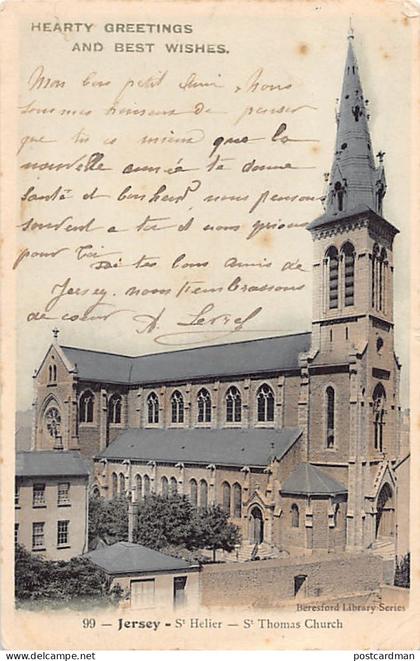 HEARTY GREETINGS
AND BEST WISHES.
Mon bon petit ami, nous
sommes heureux de penser
que tu es mieux que la
nouvelle année te donne
santé et bonheur nous pensons
souvent a toi et nous prions
pour toi
tes bons amis de
Jersey, nous t'embrassons
de cœur
99 - Jersey - St Helier - St Thomas Church
Beresford Library Series
www.delcampe.net
postcardman